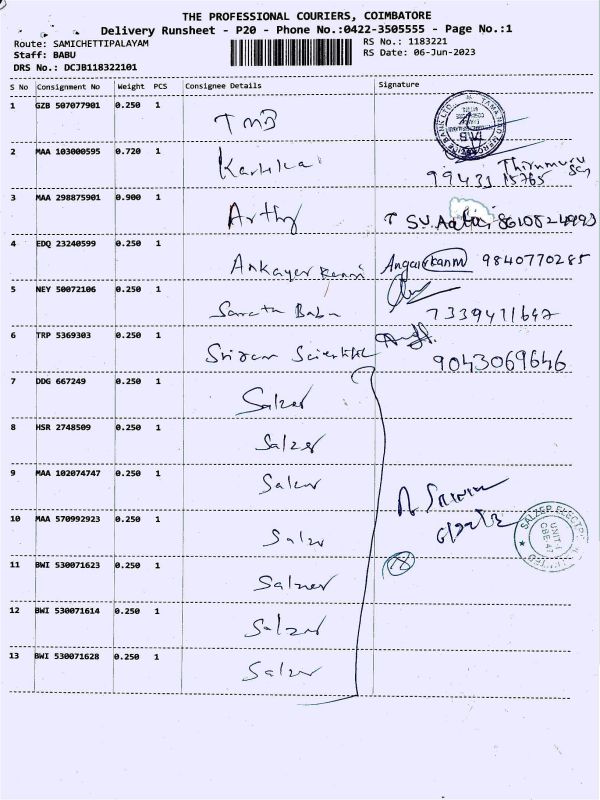 THE PROFESSIONAL COURIERS, COIMBATORE
Delivery Runsheet - P20 - Phone No.:0422-3505555 - Page No.:1
Route: SAMICHETTIPALAYAM
Staff: BABU
DRS No.: DCJB118322101
RS No.: 1183221
RS Date: 06-Jun-2023
S No Consignment No Weight PCS Consignee Details Signature
1 GZB 507077901 0.250 1 TMB
2 MAA 103000595 0.720 1 Thirumuru
99431 15765
3 MAA 298875901 0.900 1 Arthy S.V. 8610824993
4 EDQ 23240599 0.250 1 Ankayer Kanni Angai kanni 9840770285
5 NEY 50072106 0.250 1 Babu 7339411647
6 TRP 5369303 0.250 1 Sriram Scientific 9043069646
7 DDG 667249 0.250 1 Salzer
8 HSR 2748509 0.250 1 Salzer
9 MAA 102074747 0.250 1 Salzer
10 MAA 570992923 0.250 1 Salzer
11 BWI 530071623 0.250 1 Salzer
12 BWI 530071614 0.250 1 Salzer
13 BWI 530071628 0.250 1 Salzer
SALZER ELECTR
UNIT-I
CBE-47